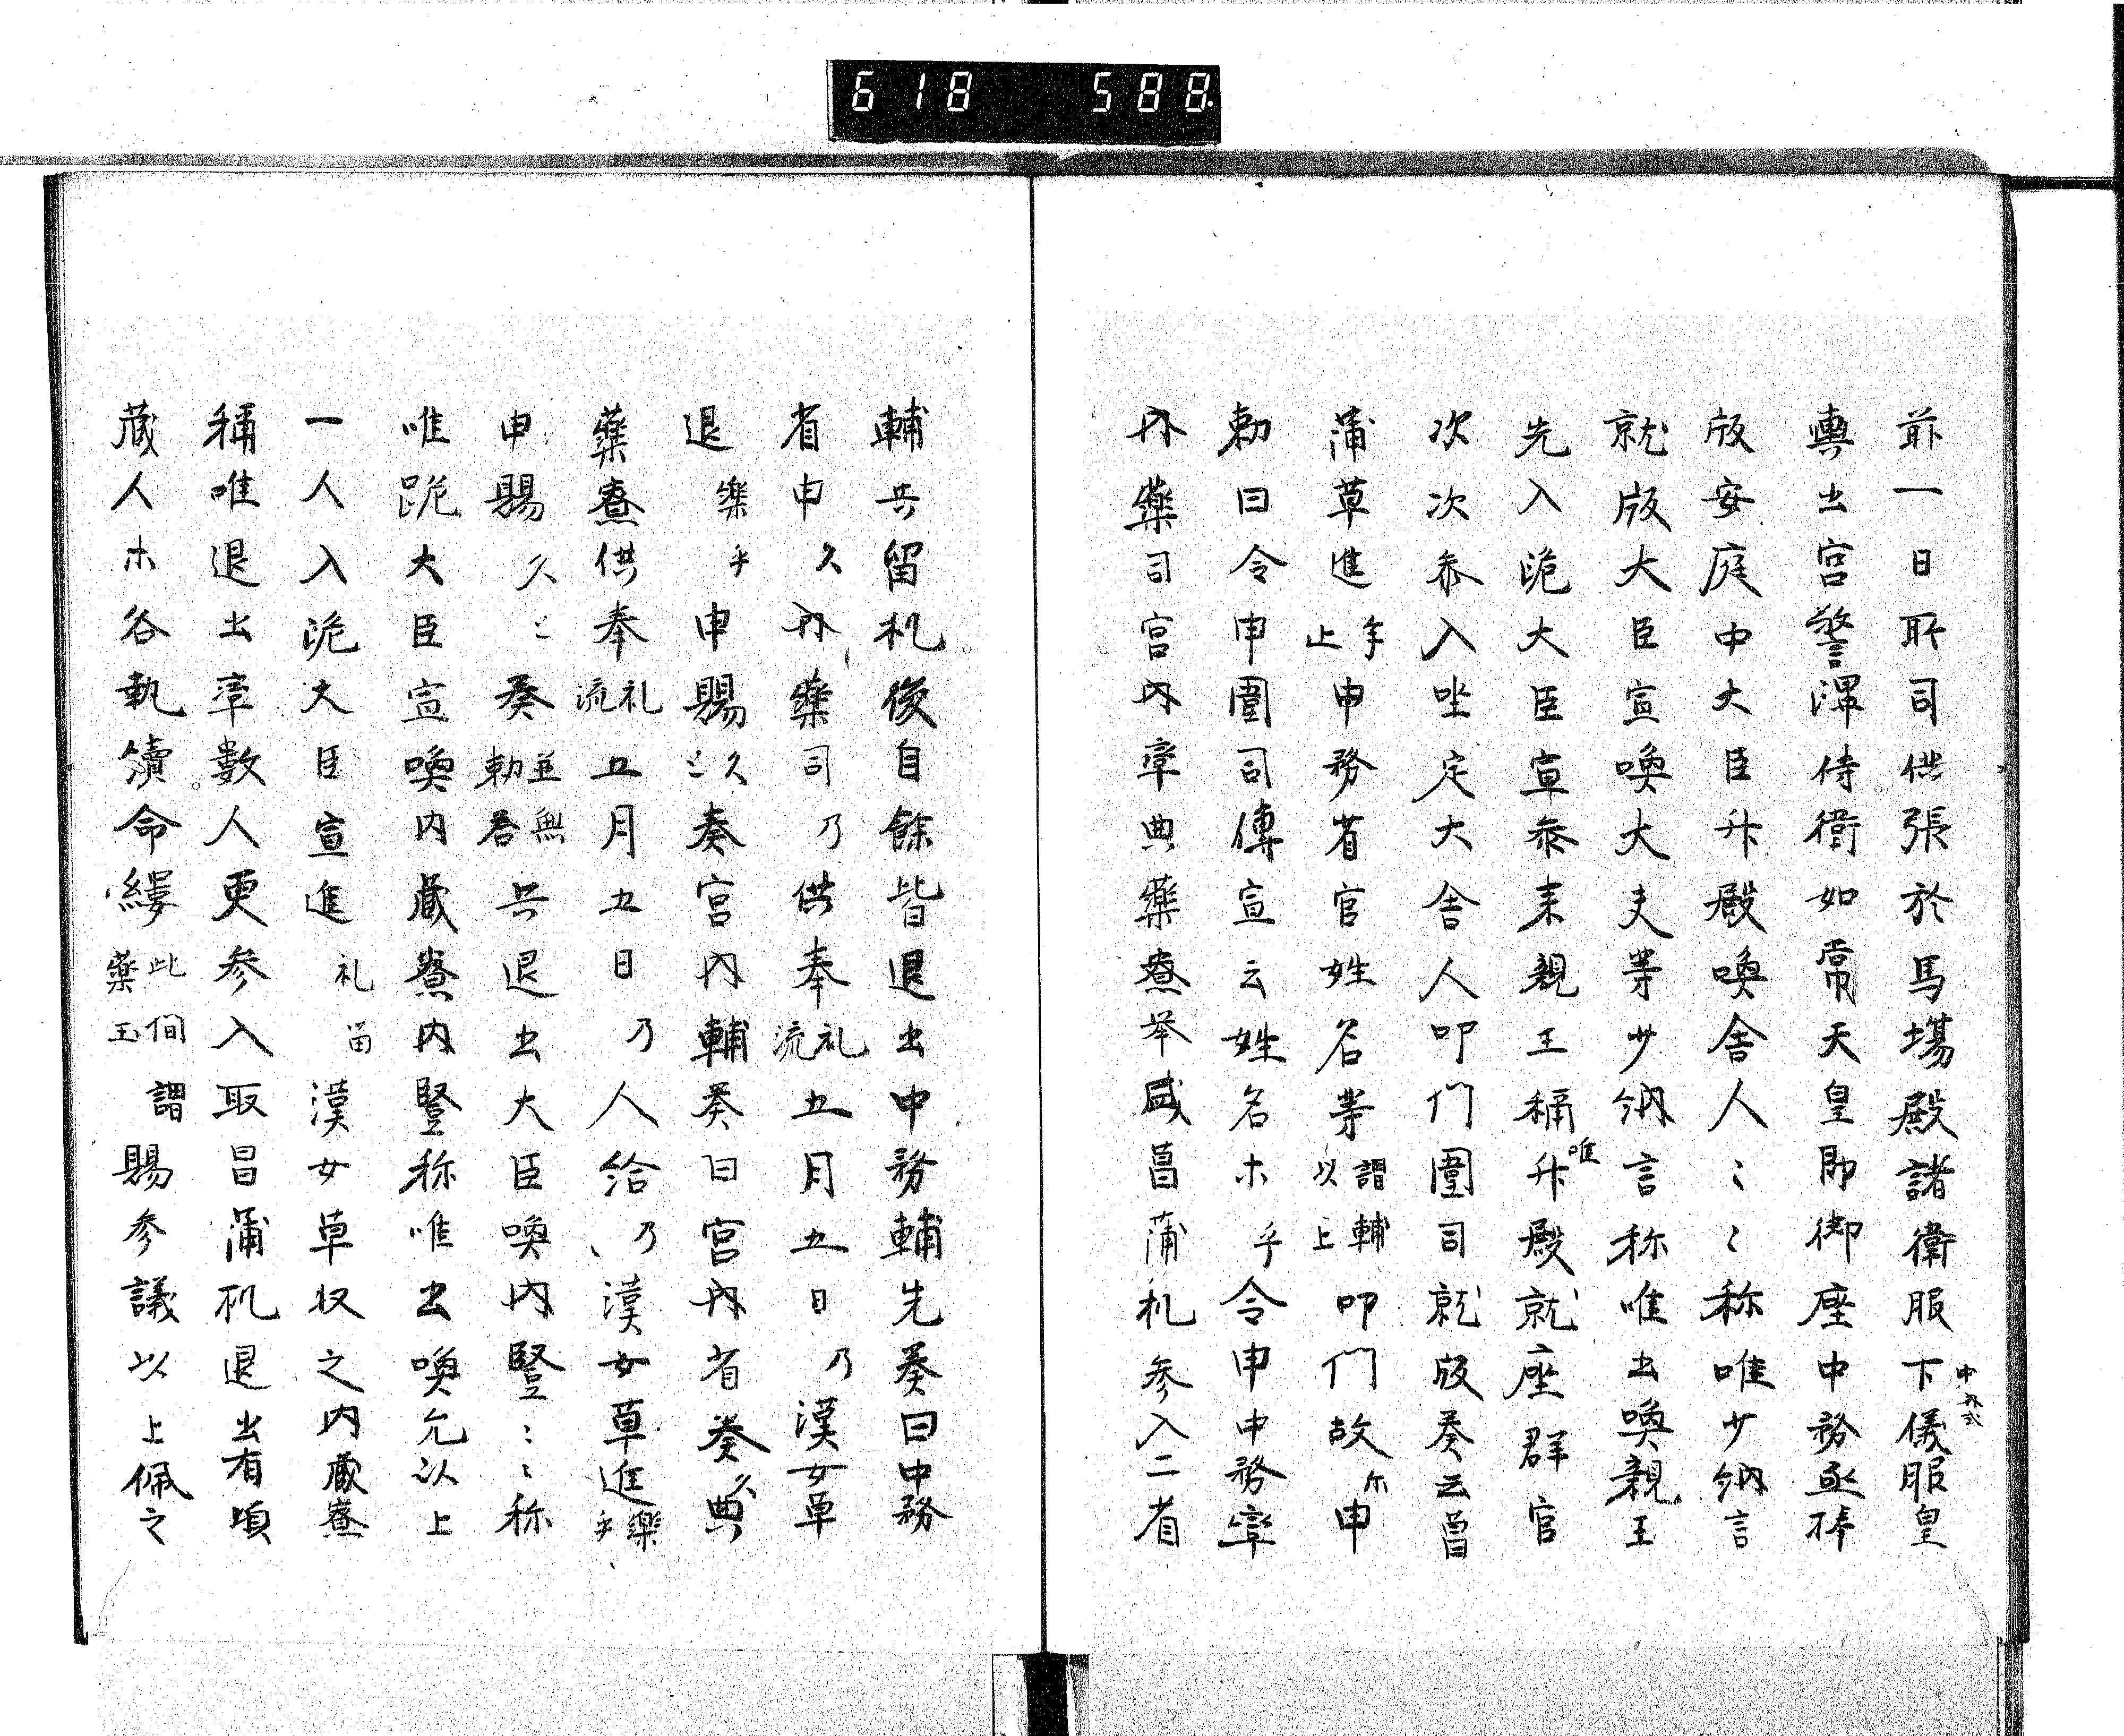 618 588
前一日所司供張於馬場殿諸衛服下儀服皇
中外式
輿出宮警渾侍衛如常天皇即御座中務丞捧
版安庭中大臣升殿喚舎人〻〻称唯少納言
就版大臣宣喚大夫等少納言称唯出喚親王
先入跪大臣宣参来親王稱唯升殿就座群官
次次参入坐定大舎人叩門闈司就版奏云菖
蒲草進牟止申務省官姓名等謂輔以上叩門故尓申
勅曰令申闈司傳宣云姓名ホ乎令申中務率
内藥司宮内率典藥寮举盛菖蒲机参入二省
輔共留机後自餘皆退出中務輔先奏曰中務
省申久内藥司乃供奉礼流五月五日乃漢女草
退樂乎申賜久〻奏宮内輔奏曰宮内省奏久典
藥寮供奉礼流五月五日乃人給乃漢女草進樂乎
申賜久〻奏並無勅答共退出大臣喚内豎〻〻称
唯跪大臣宣喚内蔵寮内豎称唯出喚允以上
一人入跪大臣宣進礼留漢女草収之内蔵寮
稱唯退出率數人更参入取昌蒲机退出有頃
蔵人ホ各執續命縷此間謂藥玉賜参議以上佩之